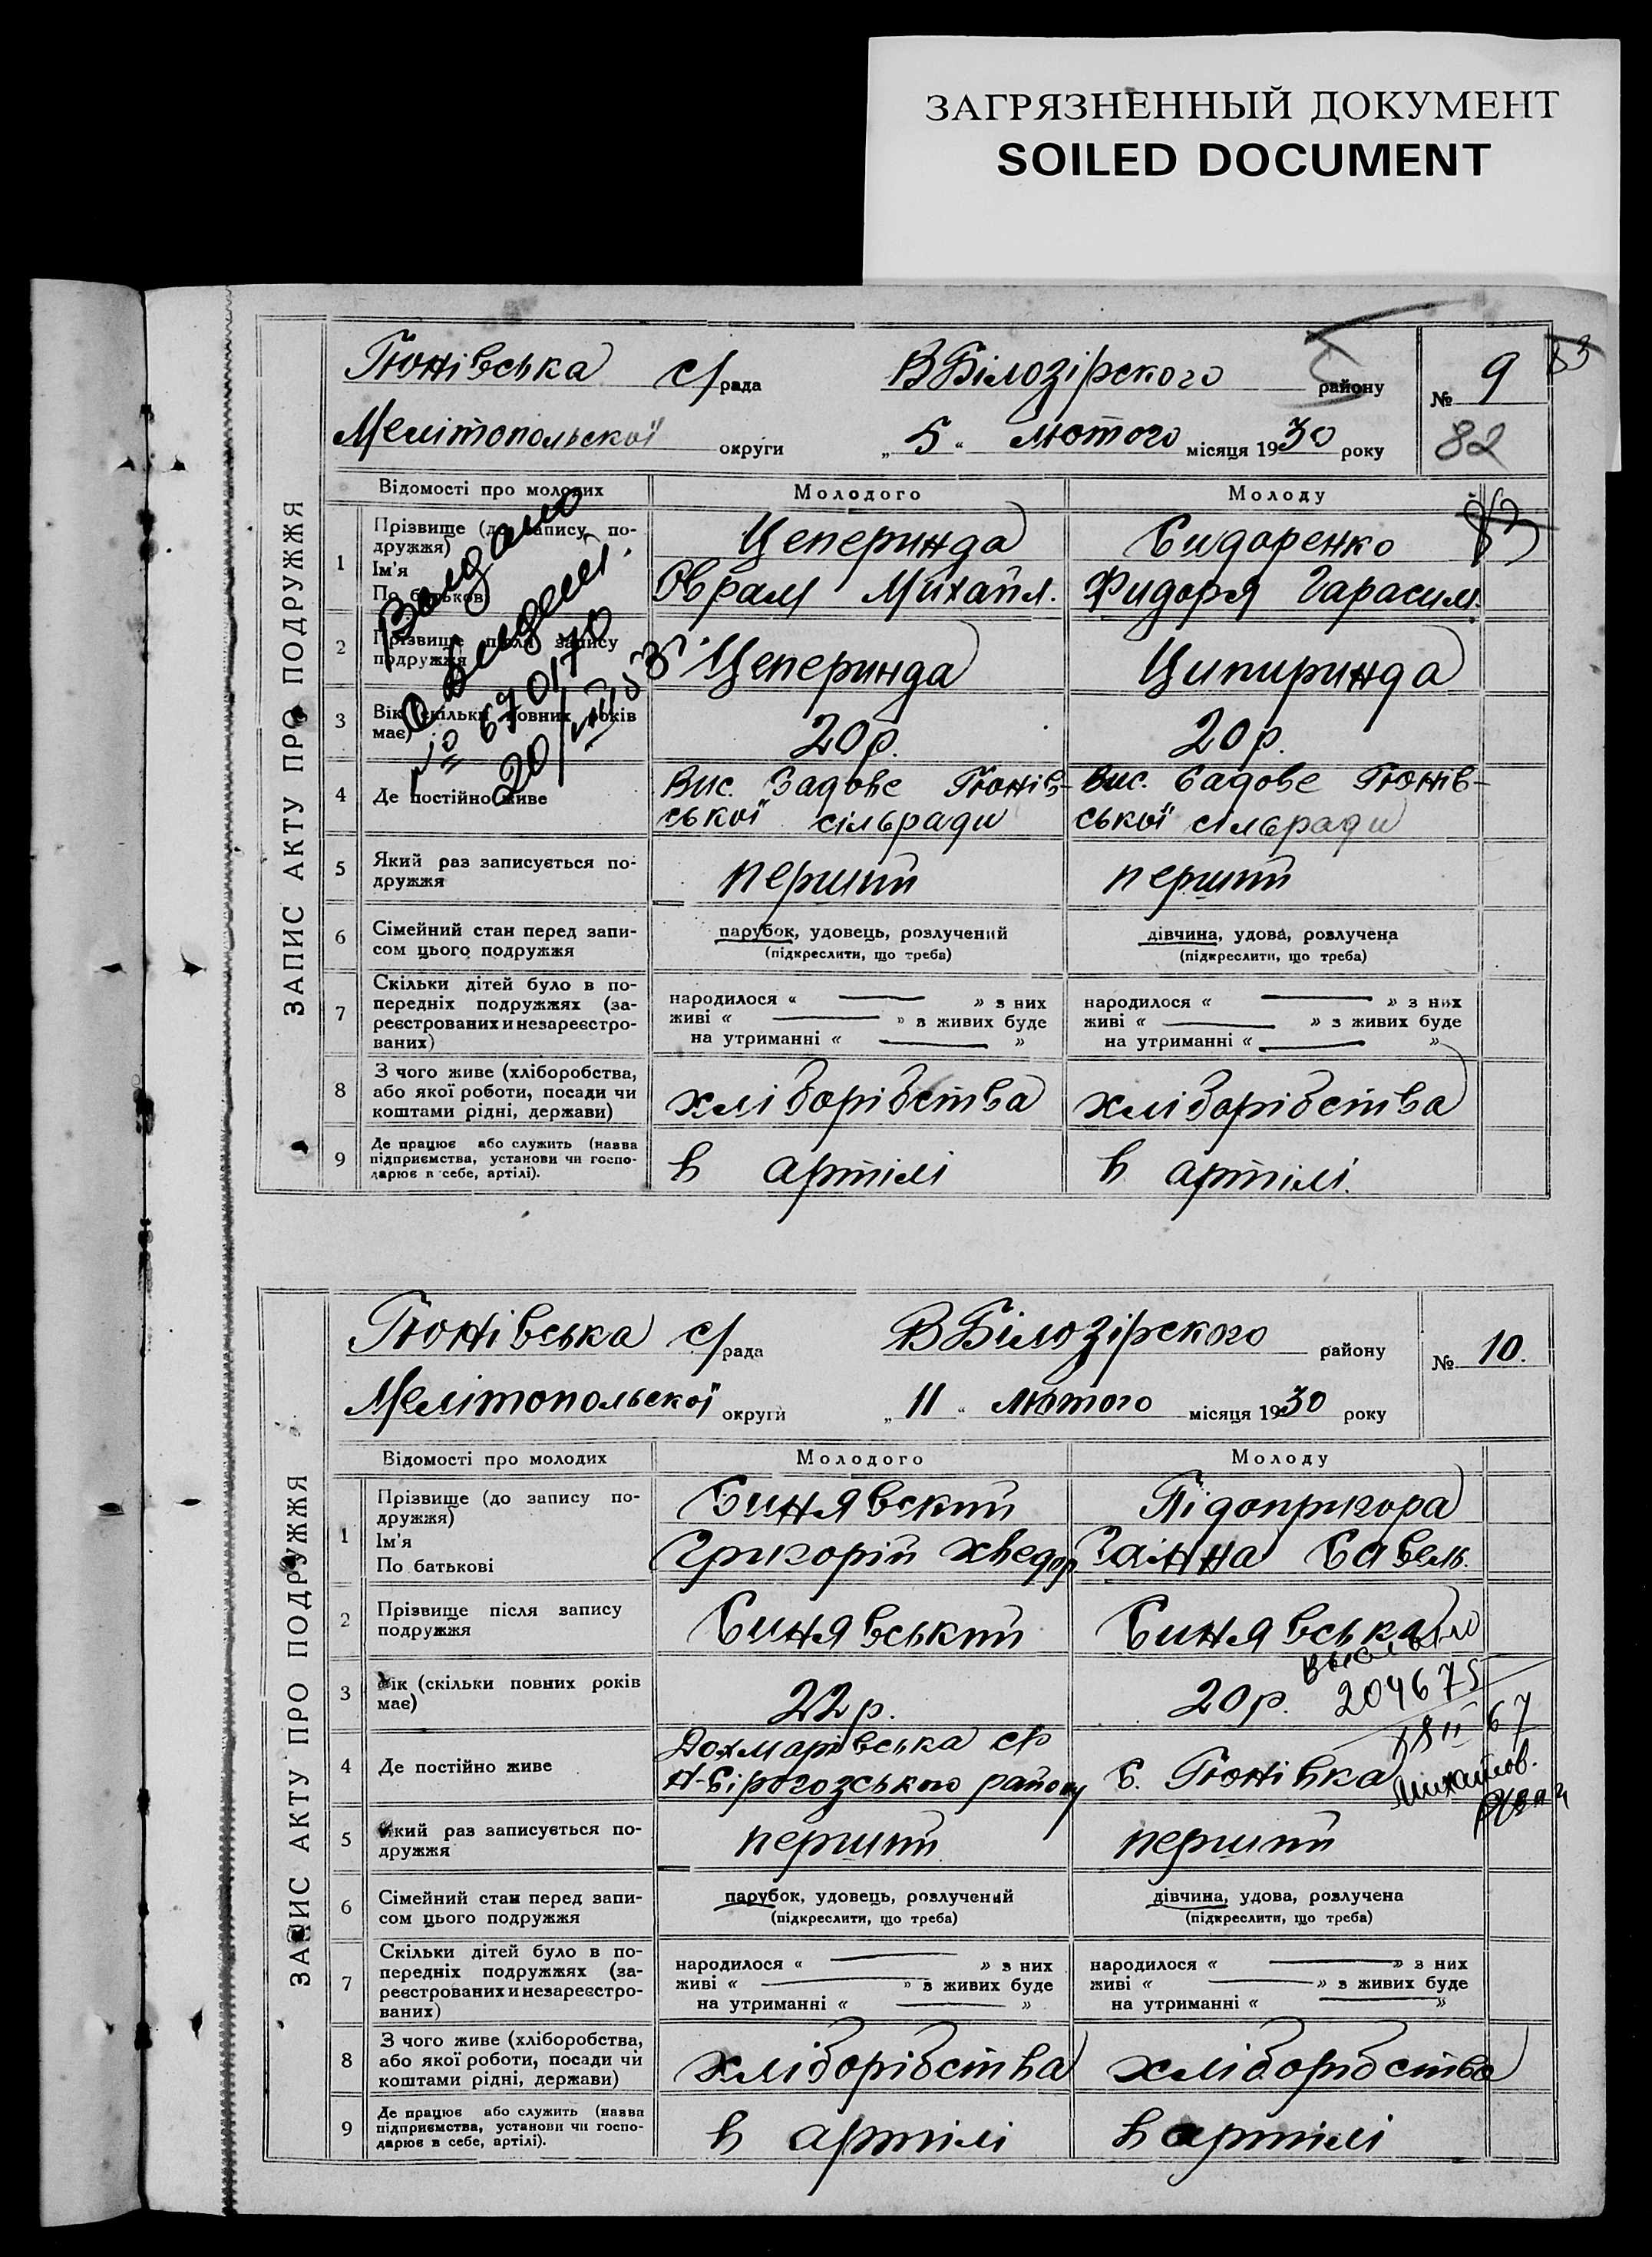 ЗАГРЯЗНЕННЫЙ ДОКУМЕНТ
SOILED DOCUMENT
ЗАПИС АКТУ ПРО ПОДРУЖЖЯ
Тюнівська с/рада ВБілозірского району № 9
83
Мелітопольскої округи „5“ лютого місяця 1930 року
82
Відомості про молодих Молодого Молоду
83
1 Прізвище (до запису по-
дружжя)
Ім'я
По батькові
Цеперинда Сидоренко
Оврам Михайл. Фидора Гарасим.
2 Прізвище після запису
подружжя
Цеперинда Ципиринда
3 Вік (скільки повних років
має)
20 р. 20 р.
4 Де постійно живе
Вис. Садове Тюнів-
ської сільради
Вис. Садове Тюнів-
ської сільради
5 Який раз записується по-
дружжя
перший перший
6 Сімейний стан перед запи-
сом цього подружжя
парубок, удовець, розлучений
(підкреслити, що треба)
дівчина, удова, розлучена
(підкреслити, що треба)
7 Скільки дітей було в по-
передніх подружжях (за-
реєстрованих и незареєстро-
ваних)
народилося « — » з них
живі « — » з живих буде
на утриманні « — »
народилося « — » з них
живі « — » з живих буде
на утриманні « — »
8 З чого живе (хліборобства,
або якої роботи, посади чи
коштами рідні, держави)
хліборібства хліборібства
9 Де працює або служить (назва
підприємства, установи чи госпо-
дарює в себе, артілі).
в артілі в артілі.
Выдано
о
№ 670170
20/
ЗАПИС АКТУ ПРО ПОДРУЖЖЯ
Тюнівська с/рада ВБілозірского району № 10.
Мелітопольскої округи „11“ лютого місяця 1930 року
Відомості про молодих Молодого Молоду
1 Прізвище (до запису по-
дружжя)
Ім'я
По батькові
Синявский Підопригора
Григорій Хведор Ганна Савель.
2 Прізвище після запису
подружжя
Синявський Синявська
3 Вік (скільки повних років
має)
22 р. 20 р.
204675
67
Михайлов.
4 Де постійно живе
с/р
Н-Сірогозського району
С. Тюнівка
5 Який раз записується по-
дружжя
перший перший
6 Сімейний стан перед запи-
сом цього подружжя
парубок, удовець, розлучений
(підкреслити, що треба)
дівчина, удова, розлучена
(підкреслити, що треба)
7 Скільки дітей було в по-
передніх подружжях (за-
реєстрованих и незареєстро-
ваних)
народилося « — » з них
живі « — » з живих буде
на утриманні « — »
народилося « — » з них
живі « — » з живих буде
на утриманні « — »
8 З чого живе (хліборобства,
або якої роботи, посади чи
коштами рідні, держави)
хліборібства хліборібства
9 Де працює або служить (назва
підприємства, установи чи госпо-
дарює в себе, артілі).
в артілі в артілі